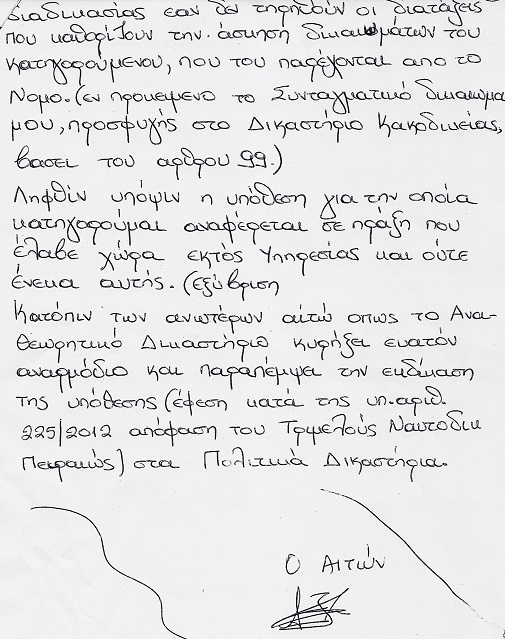 διαδικασίας εαν δεν τηρηθούν οι διατάξεις
που καθορίζουν την άσκηση δικαιωμάτων του
κατηγορούμενου, που του παρέχονται απο το
Νομο. (εν προκειμένο το Συνταγματικό δικαιωμα
μου, προσφυγής στο Δικαστήριο Κακοδικείας,
βασει του αρθρου 99.)
Ληφθίν υπόψιν η υπόθεση για την οποία
κατηγορούμαι αναφέρεται σε πράξη που
έλαβε χώρα εκτός υπηρεσίας και ούτε
ένεκα αυτής. (εξύβριση
Κατόπιν των ανωτέρων αιτώ οπως το Ανα-
θεωρητικό Δικαστήριο κυρήξει ευατόν
αναρμόδιο και παραπέμψει την εκδίκαση
της υπόθεσης (έφεση κατά της υπ. αριθ.
225/2012 απόφαση του Τριμελούς Ναυτοδικ
Πειραιώς) στα Πολιτικά Δικαστήρια.
Ο ΑΙΤΩΝ